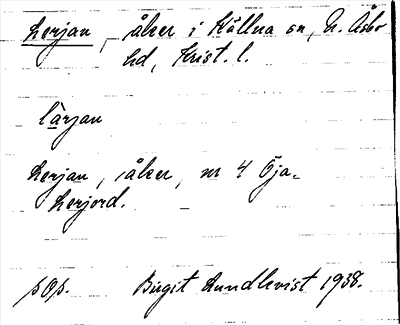 Lerjan, åker i Källna sn, N. Åsbo
hd, Krist. l.
lärjan
Lerjan, åker, nr 4 Öja=
Lerjord.
pOp. Birgit Lundkvist 1938.